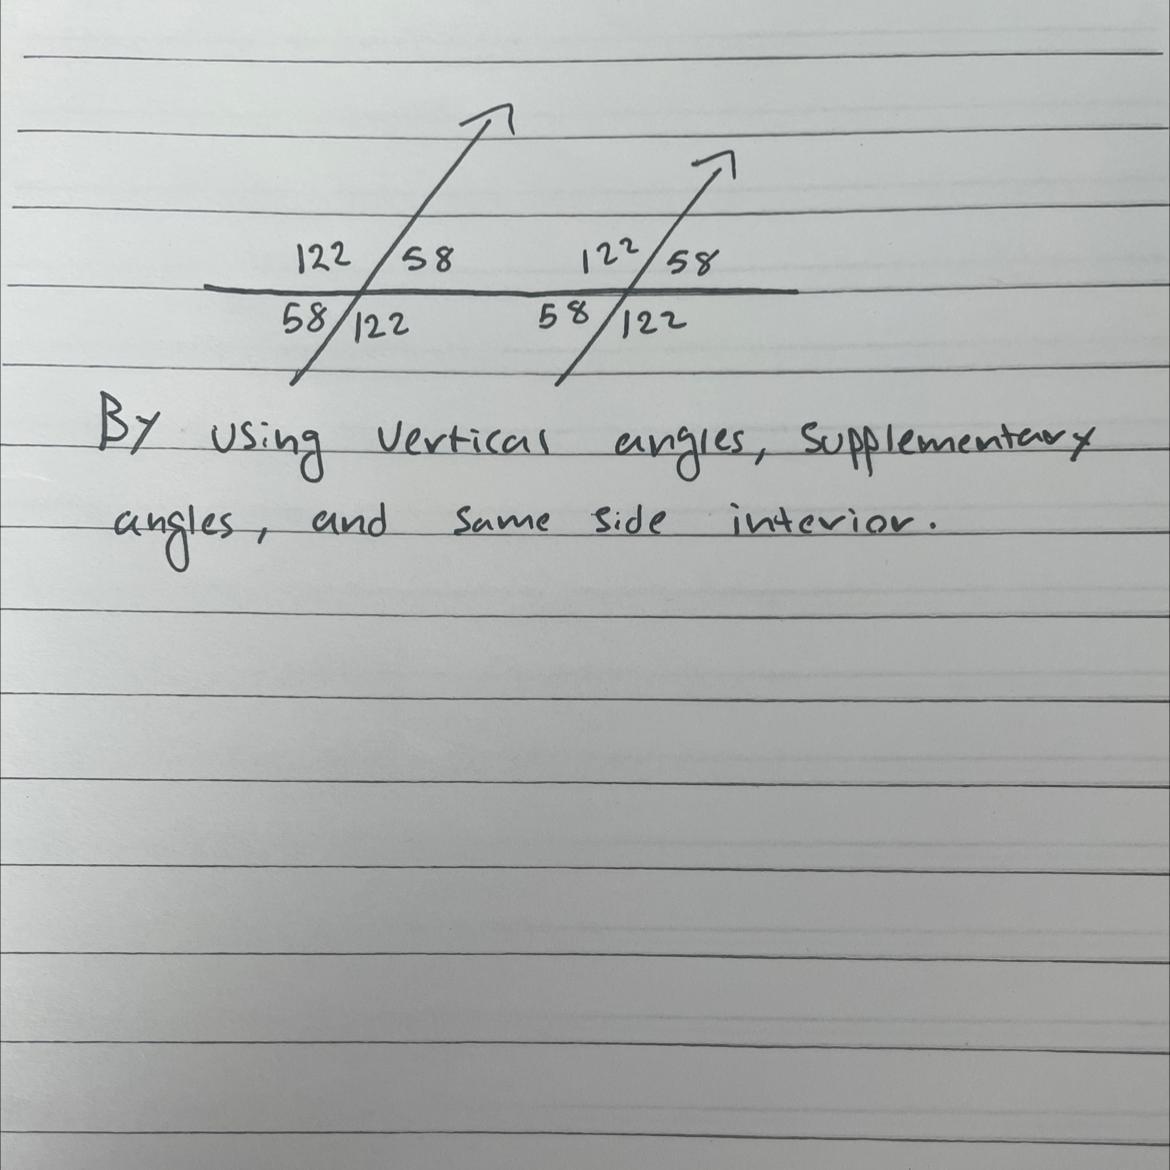 122 58 122 58
58 122 58 122
By using vertical angles, supplementary
angles, and same side interior.